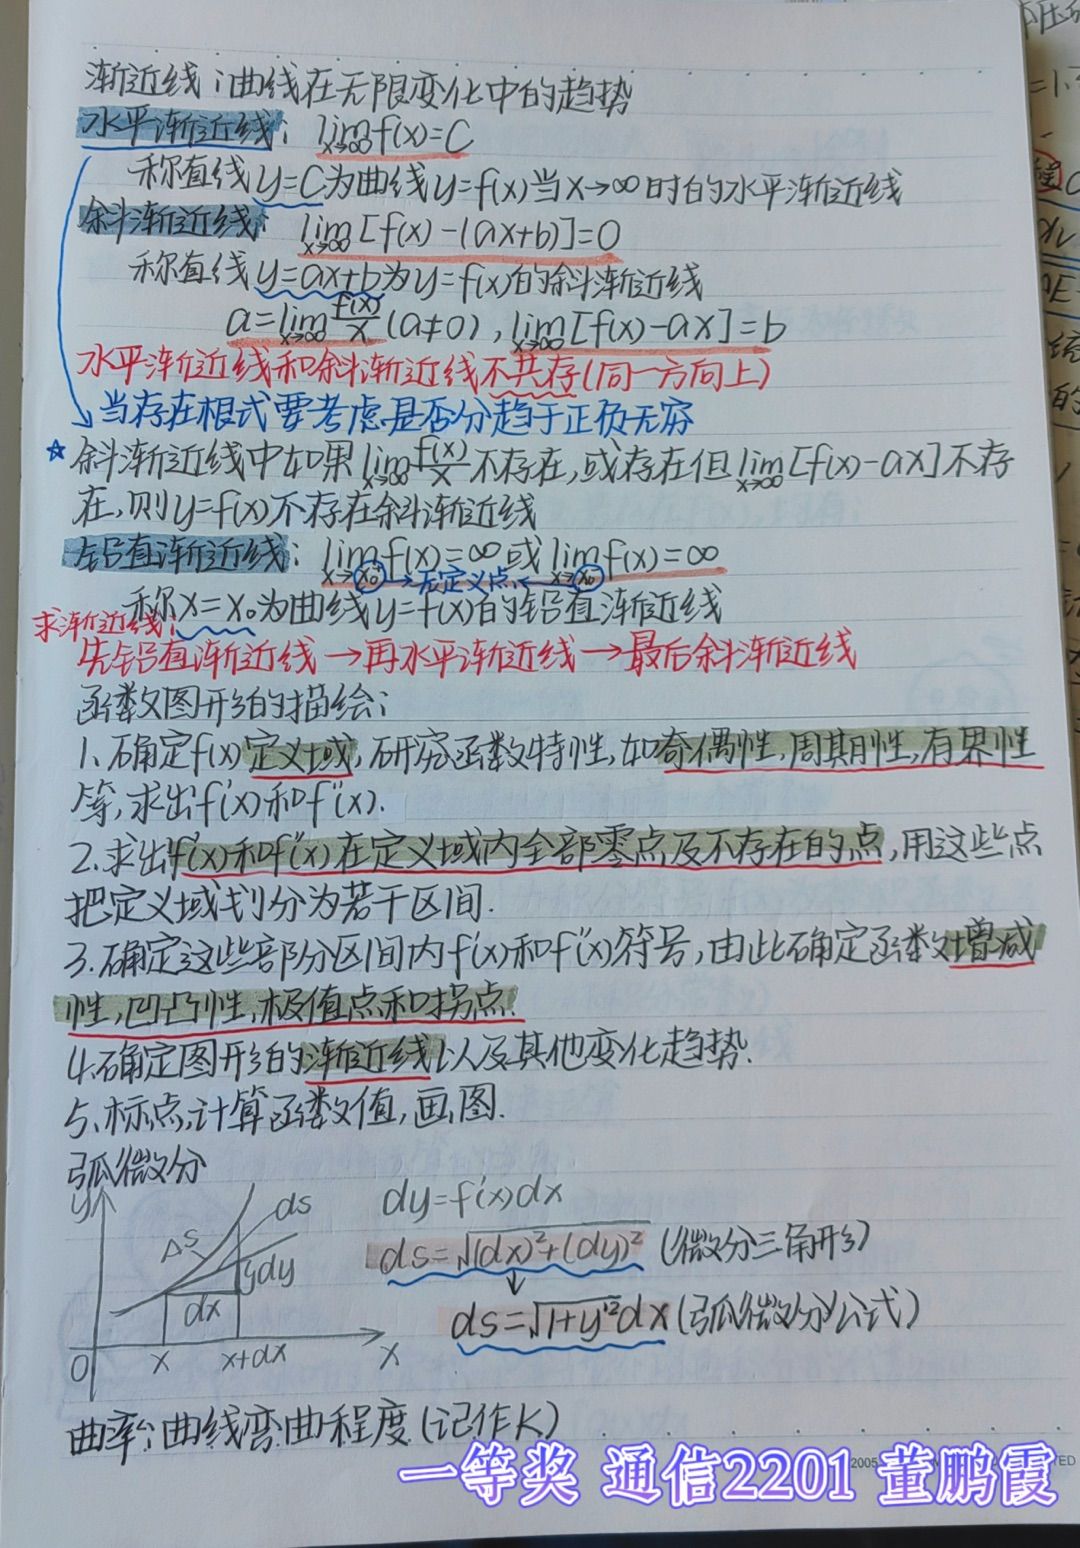 渐近线:曲线在无限变化中的趋势
水平渐近线: lim x→∞ f(x)=C
称直线y=C为曲线y=f(x)当x→∞时的水平渐近线
斜渐近线: lim x→∞ [f(x)-(ax+b)]=0
称直线y=ax+b为y=f(x)的斜渐近线
a=lim x→∞ f(x)/x (a≠0), lim x→∞ [f(x)-ax]=b
水平渐近线和斜渐近线不共存(同一方向上)
当存在根式要考虑是否分趋于正负无穷
☆ 斜渐近线中如果 lim x→∞ f(x)/x 不存在,或存在但 lim x→∞ [f(x)-ax]不存
在,则y=f(x)不存在斜渐近线
铅直渐近线: lim x→x₀⁺ f(x)=∞或 lim x→x₀⁻ f(x)=∞
→无定义点←
称x=x₀为曲线y=f(x)的铅直渐近线
求渐近线:
先铅直渐近线→再水平渐近线→最后斜渐近线
函数图形的描绘:
1.确定f(x)定义域,研究函数特性,如奇偶性,周期性,有界性
等,求出f'(x)和f''(x).
2.求出f'(x)和f''(x)在定义域内全部零点及不存在的点,用这些点
把定义域划分为若干区间.
3.确定这些部分区间内f'(x)和f''(x)符号,由此确定函数增减
性,凹凸性,极值点和拐点.
4.确定图形的渐近线以及其他变化趋势.
5.标点,计算函数值,画图.
弧微分
y
ds
Δs
dy
dx
O x x+dx x
dy=f'(x)dx
ds=√(dx)²+(dy)² (微分三角形)
ds=√1+y'²dx(弧微分公式)
曲率:曲线弯曲程度(记作K)
一等奖 通信2201 董鹏霞